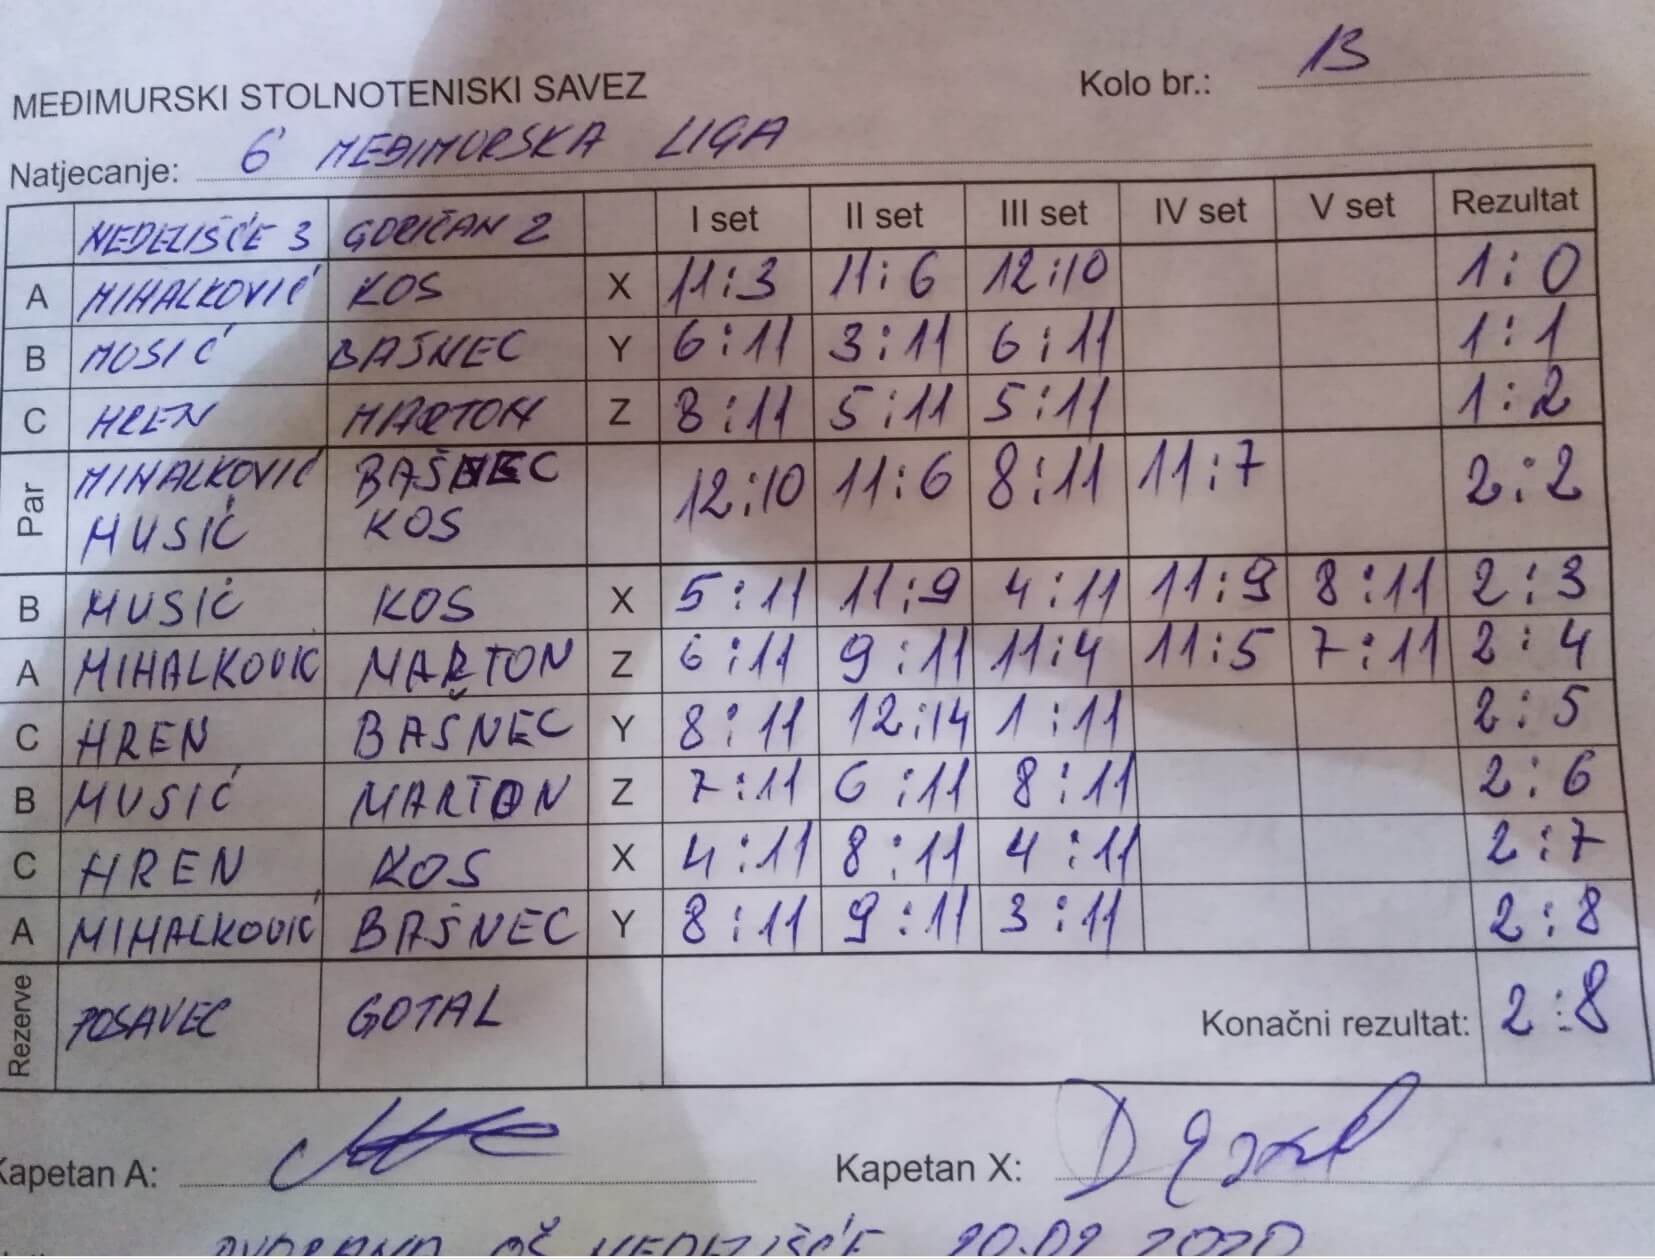 Kolo br.: 13
MEĐIMURSKI STOLNOTENISKI SAVEZ
Natjecanje: 6 MEĐIMURSKA LIGA
NEDELIŠĆE 3 GORIČAN 2 I set II set III set IV set V set Rezultat
A MIHALKOVIĆ KOS X 11:3 11:6 12:10 1:0
B MUSIĆ BAŠNEC Y 6:11 3:11 6:11 1:1
C HREN MARTON Z 8:11 5:11 5:11 1:2
Par MIHALKOVIĆ BAŠNEC 12:10 11:6 8:11 11:7 2:2
MUSIĆ KOS
B MUSIĆ KOS X 5:11 11:9 4:11 11:9 8:11 2:3
A MIHALKOVIĆ MARTON Z 6:11 9:11 11:4 11:5 7:11 2:4
C HREN BAŠNEC Y 8:11 12:14 1:11 2:5
B MUSIĆ MARTON Z 7:11 6:11 8:11 2:6
C HREN KOS X 4:11 8:11 4:11 2:7
A MIHALKOVIĆ BAŠNEC Y 8:11 9:11 3:11 2:8
Rezerve POSAVEC GOTAL Konačni rezultat: 2:8
Kapetan A: Kapetan X:
DVORANA OŠ NEDELIŠĆE 20.02.2020